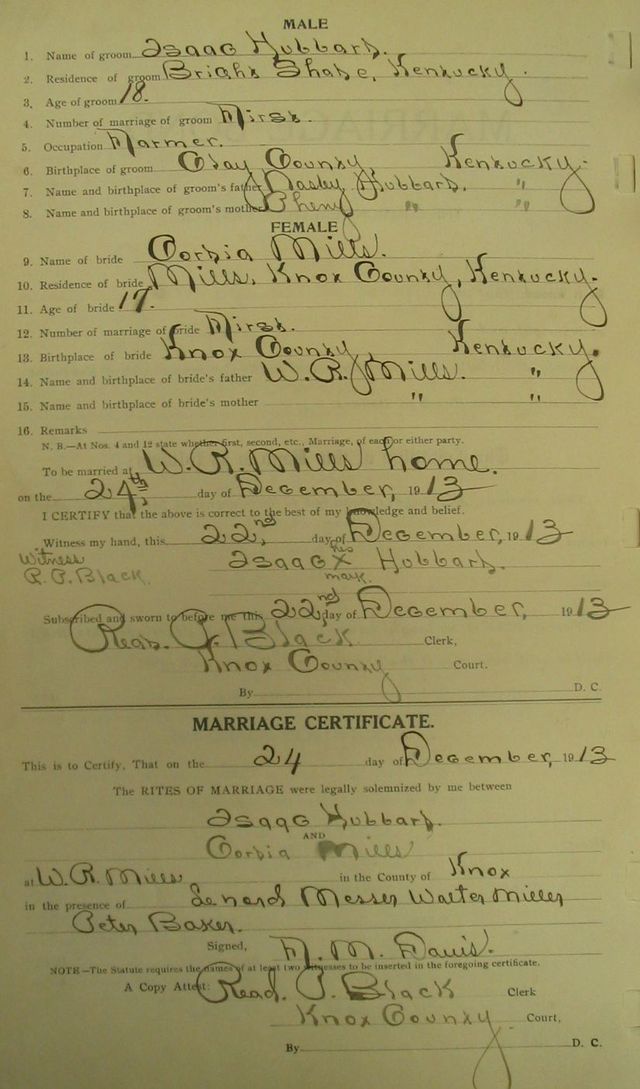 MALE
1. Name of groom Isaac Hubbard.
2. Residence of groom Bright Shade, Kentucky.
3. Age of groom 18.
4. Number of marriage of groom First.
5. Occupation Farmer.
6. Birthplace of groom Clay County, Kentucky.
7. Name and birthplace of groom's father Hubbard. "
8. Name and birthplace of groom's mother " "
FEMALE
9. Name of bride Mills.
10. Residence of bride Mills, Knox County, Kentucky.
11. Age of bride 17.
12. Number of marriage of bride First.
13. Birthplace of bride Knox County, Kentucky.
14. Name and birthplace of bride's father W. R. Mills. "
15. Name and birthplace of bride's mother " "
16. Remarks
N. B.—At Nos. 4 and 12 state whether first, second, etc., Marriage, of each or either party.
To be married at W. R. Mills home.
on the 24th, day of December, 1913
I CERTIFY that the above is correct to the best of my knowledge and belief.
Witness my hand, this 22,nd day of December, 1913
Witness Isaac his x mark. Hubbard.
Black.
Subscribed and sworn to before me this 22nd, day of December, 1913
Read. P. Black Clerk,
Knox County Court.
By D. C.
MARRIAGE CERTIFICATE.
This is to Certify, That on the 24 day of December, 1913
The RITES OF MARRIAGE were legally solemnized by me between
Isaac Hubbard.
AND
Mills
at W. R. Mills in the County of Knox
in the presence of Messer Walter Miller
Peter Baker.
Signed, M. Davis.
NOTE—The Statute requires the names of at least two witnesses to be inserted in the foregoing certificate.
A Copy Attest: Read. P. Black Clerk
Knox County Court,
By D. C.